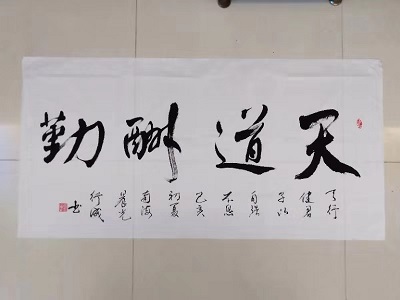 天道酬勤
天行
健君
子以
自强
不息
己亥
初夏
南海
晨光
书